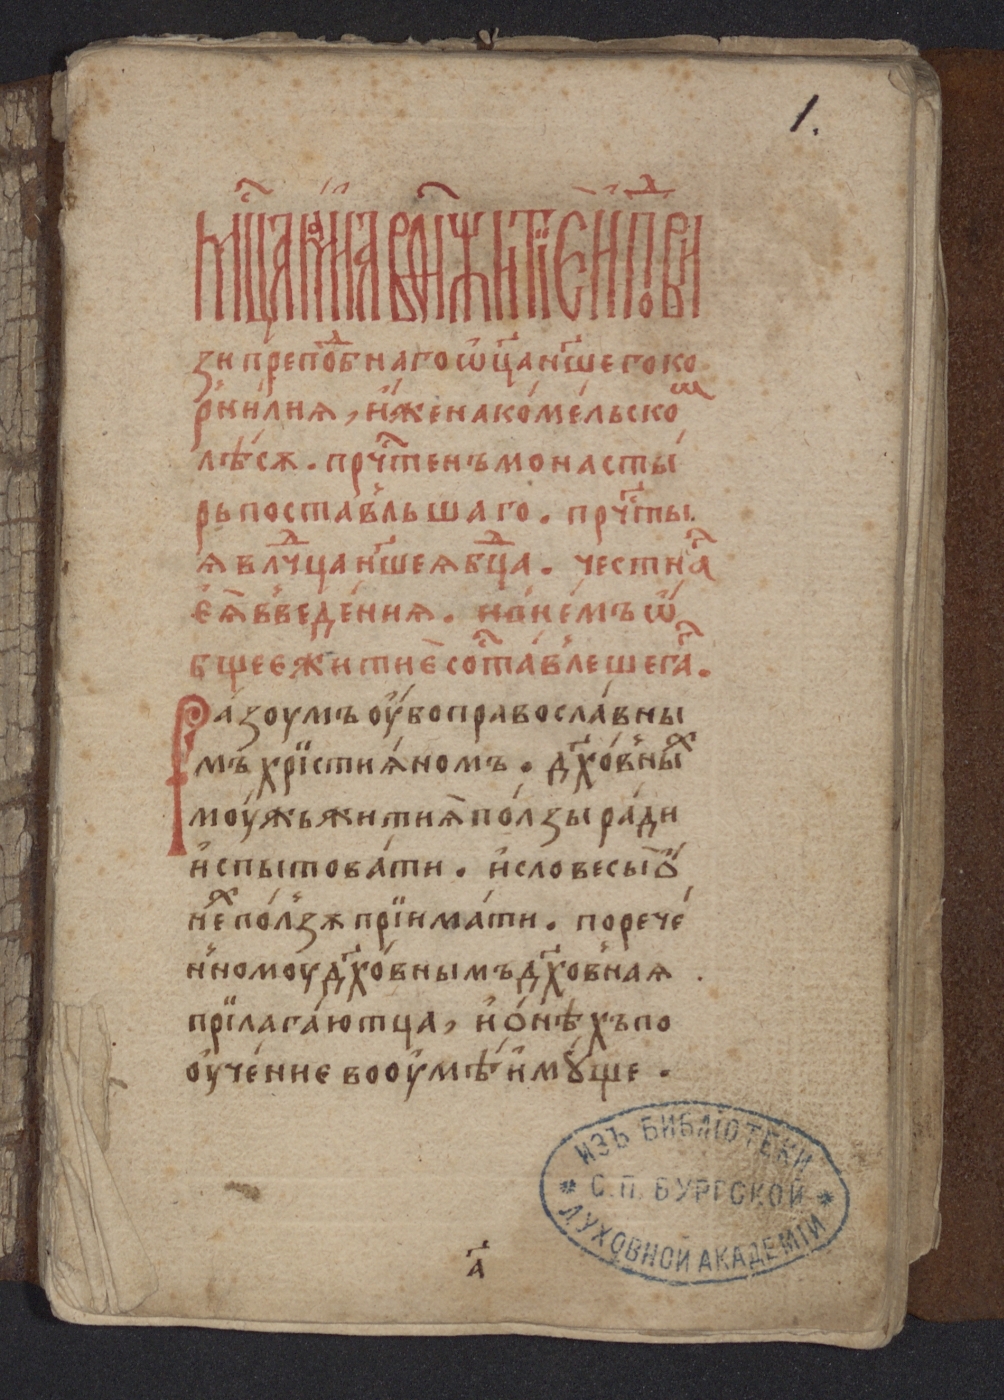 1.
мⷭ҇ца маиⷶ҇ въ ѳ҃і житїе и по́двѝ
зи прѣпоⷣбнаго ѡц҃а нш҃его ко
рни́лиѧ, и҆́же на ко́ме́льскоⷨ
лѣ́сѫ. прчⷭ҇тенъ монасты́
рь поста́вльшаго. прчⷭ҇ты
ѧ влⷣчца нш҃еѧ бцⷣа. честна́гⷪ
еѧ̀ введе́ниѧ. и в не́мъ ѡ҆́
бщее житиѐ соста́влешегⷪ.
Ра́зоумъ оу҆́бо православны
мъ хрїстиѧ́номъ. дх҃о́вныⷯ
моу́жь житиѧ̀ по́лзы ра́ди
и҆спытова́ти. и҆ словесы̀ ᲂу҆́
ниⷯ по́лзѫ прїима́ти. по рече́
нномоу дх҃о́внымъ дх҃о́внаѧ
прїлага́ютца, и҆ ѻ҆ нѣ́хъ по
оуче́ние во оу҆мѣ́ и҆мꙋ́ще.
а҃
ИЗЪ БИБЛІОТЕКИ
С.П. БУРГСКОЙ
ДУХОВНОЙ АКАДЕМІИ